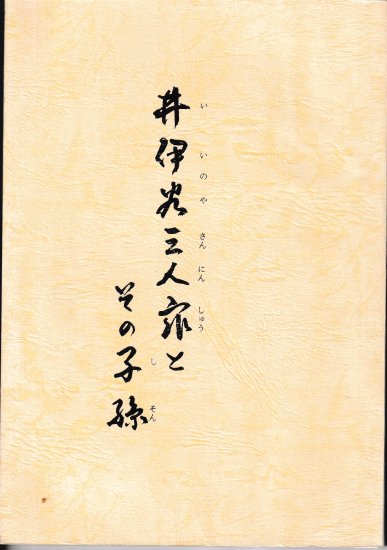 井伊谷三人衆と
いいのやさんにんしゅう
その子孫
しそん